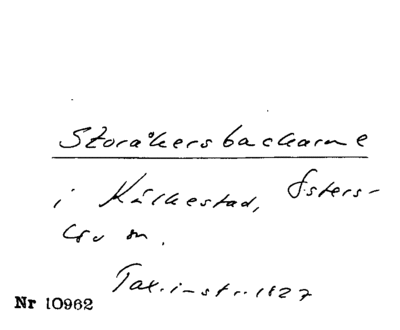 Storåkersbackarne
i Kulkestad, Östers-
löv sn.
Tax.instr. 1827
Nr 10962